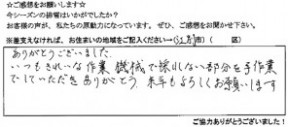 ☆ご感想をお願いします☆
今シーズンの排雪はいかがでしたか？
お客様の声が、私たちの原動力になっています。ぜひ、ご感想をお聞かせ下さい。
※差支えなければ、お住まいの地域をご記入ください→（江別市）（　区）
ありがとうございました。
いつもきれいな作業 機械で採れない部分を手作業
でしていただきありがとう。来年もよろしくお願いします
ご協力ありがとうございました！